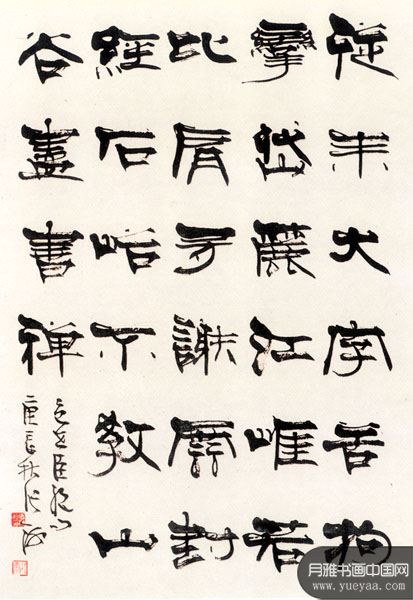 從来大字苦拘
攣岱麓江唯若
比肩多謝封
經石峪不教山
谷盡書禪
包世臣
庚辰秋
月雅书画中国网
www.yueyaa.com